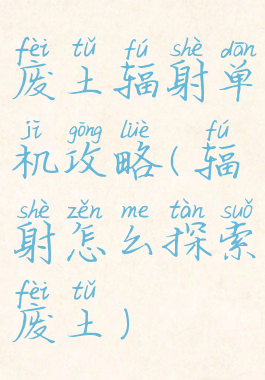 fèi tǔ fú shè dān
废土辐射单
jī gōng lüè fú
机攻略(辐
shè zěn me tàn suǒ
射怎么探索
fèi tǔ
废土)